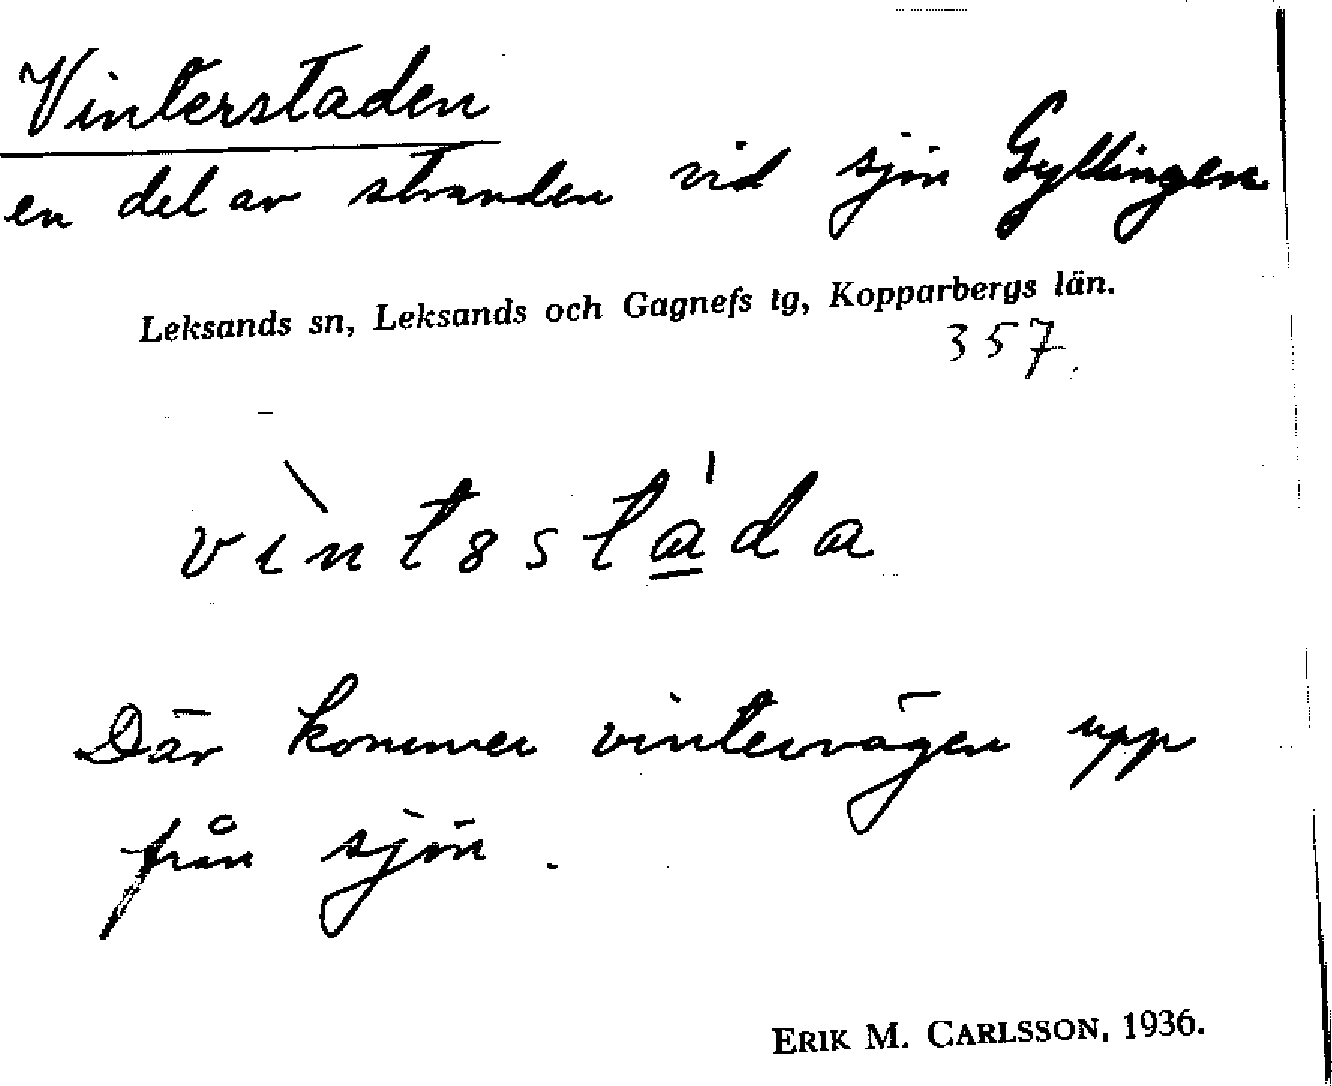 Vinterstaden
en del av stranden vid sjön Gyllingen
Leksands sn, Leksands och Gagnefs tg, Kopparbergs län.
357.
vìntsstáda
Där kommer vintervägen upp
från sjön.
ERIK M. CARLSSON, 1936.